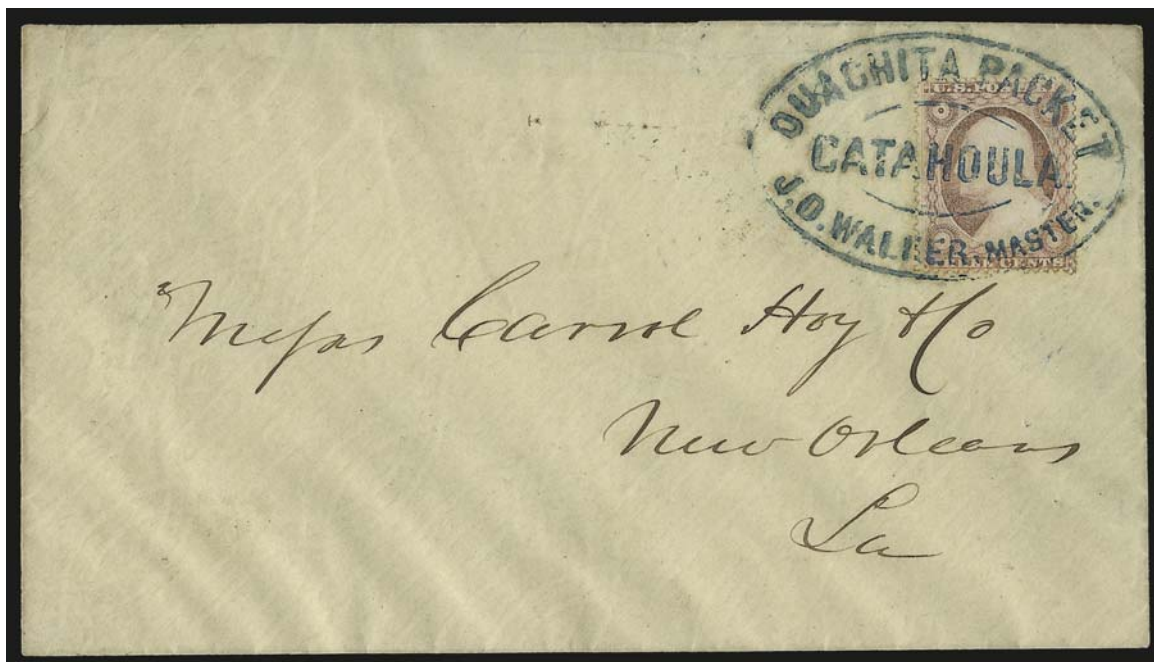 OUACHITA PACKET
CATAHOULA.
J.D. WALKER, MASTER.
U.S. POSTAGE
CENTS
Messrs Carrol Hoy & Co
New Orleans
La